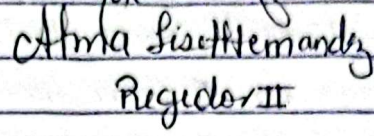 Alma Liseth Hernandez
Regidor II